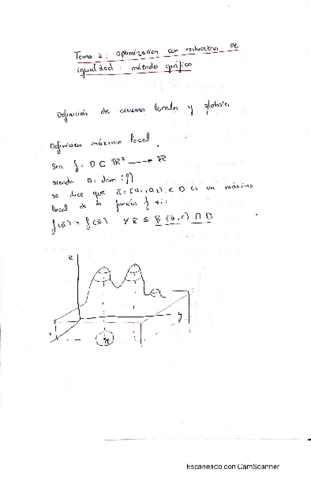 Tema 2: optimización con restricciones de
igualdad. método gráfico
Definición de extremos locales y globales
Definición máximo local
Sea f: D ⊂ ℝ² → ℝ
siendo D: dom (f)
se dice que ā = (a₁, a₂) ∈ D es un máximo
local de la función f si:
f(ā) ≥ f(x̄) ∀ x̄ ∈ B (ā, r) ∩ D
z
y
Escaneado con CamScanner